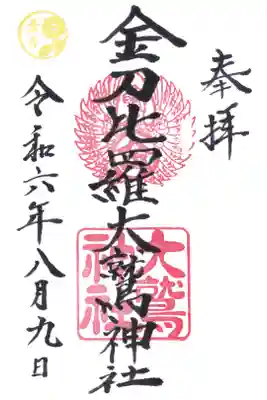 奉拝
金刀比羅大鷲神社
大鷲
神社
令和六年八月九日